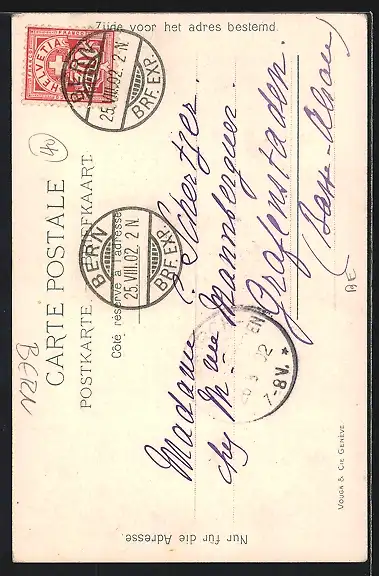 Zijde voor het adres bestemd.
HELVETIA
FRANCO
BERN
25.VIII.02. 2 N.
BRF. EXP.
40
CARTE POSTALE
POSTKARTE BRIEFKAART
Côté réservé à l'adresse
BERN
25.VIII.02. 2 N.
BRF. EXP.
Madame C. Schertzer.
chz Me vve Mannberguer.
Grafenstaden.
(Basse-Alsace)
EN
02
7-8V. *
BERN
BE
VOUGA & CIE GENÈVE.
Nur für die Adresse.